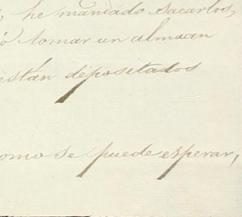 , he mandado sacarlos,
ó tomar un almacen
están depositados
omo se puede esperar,